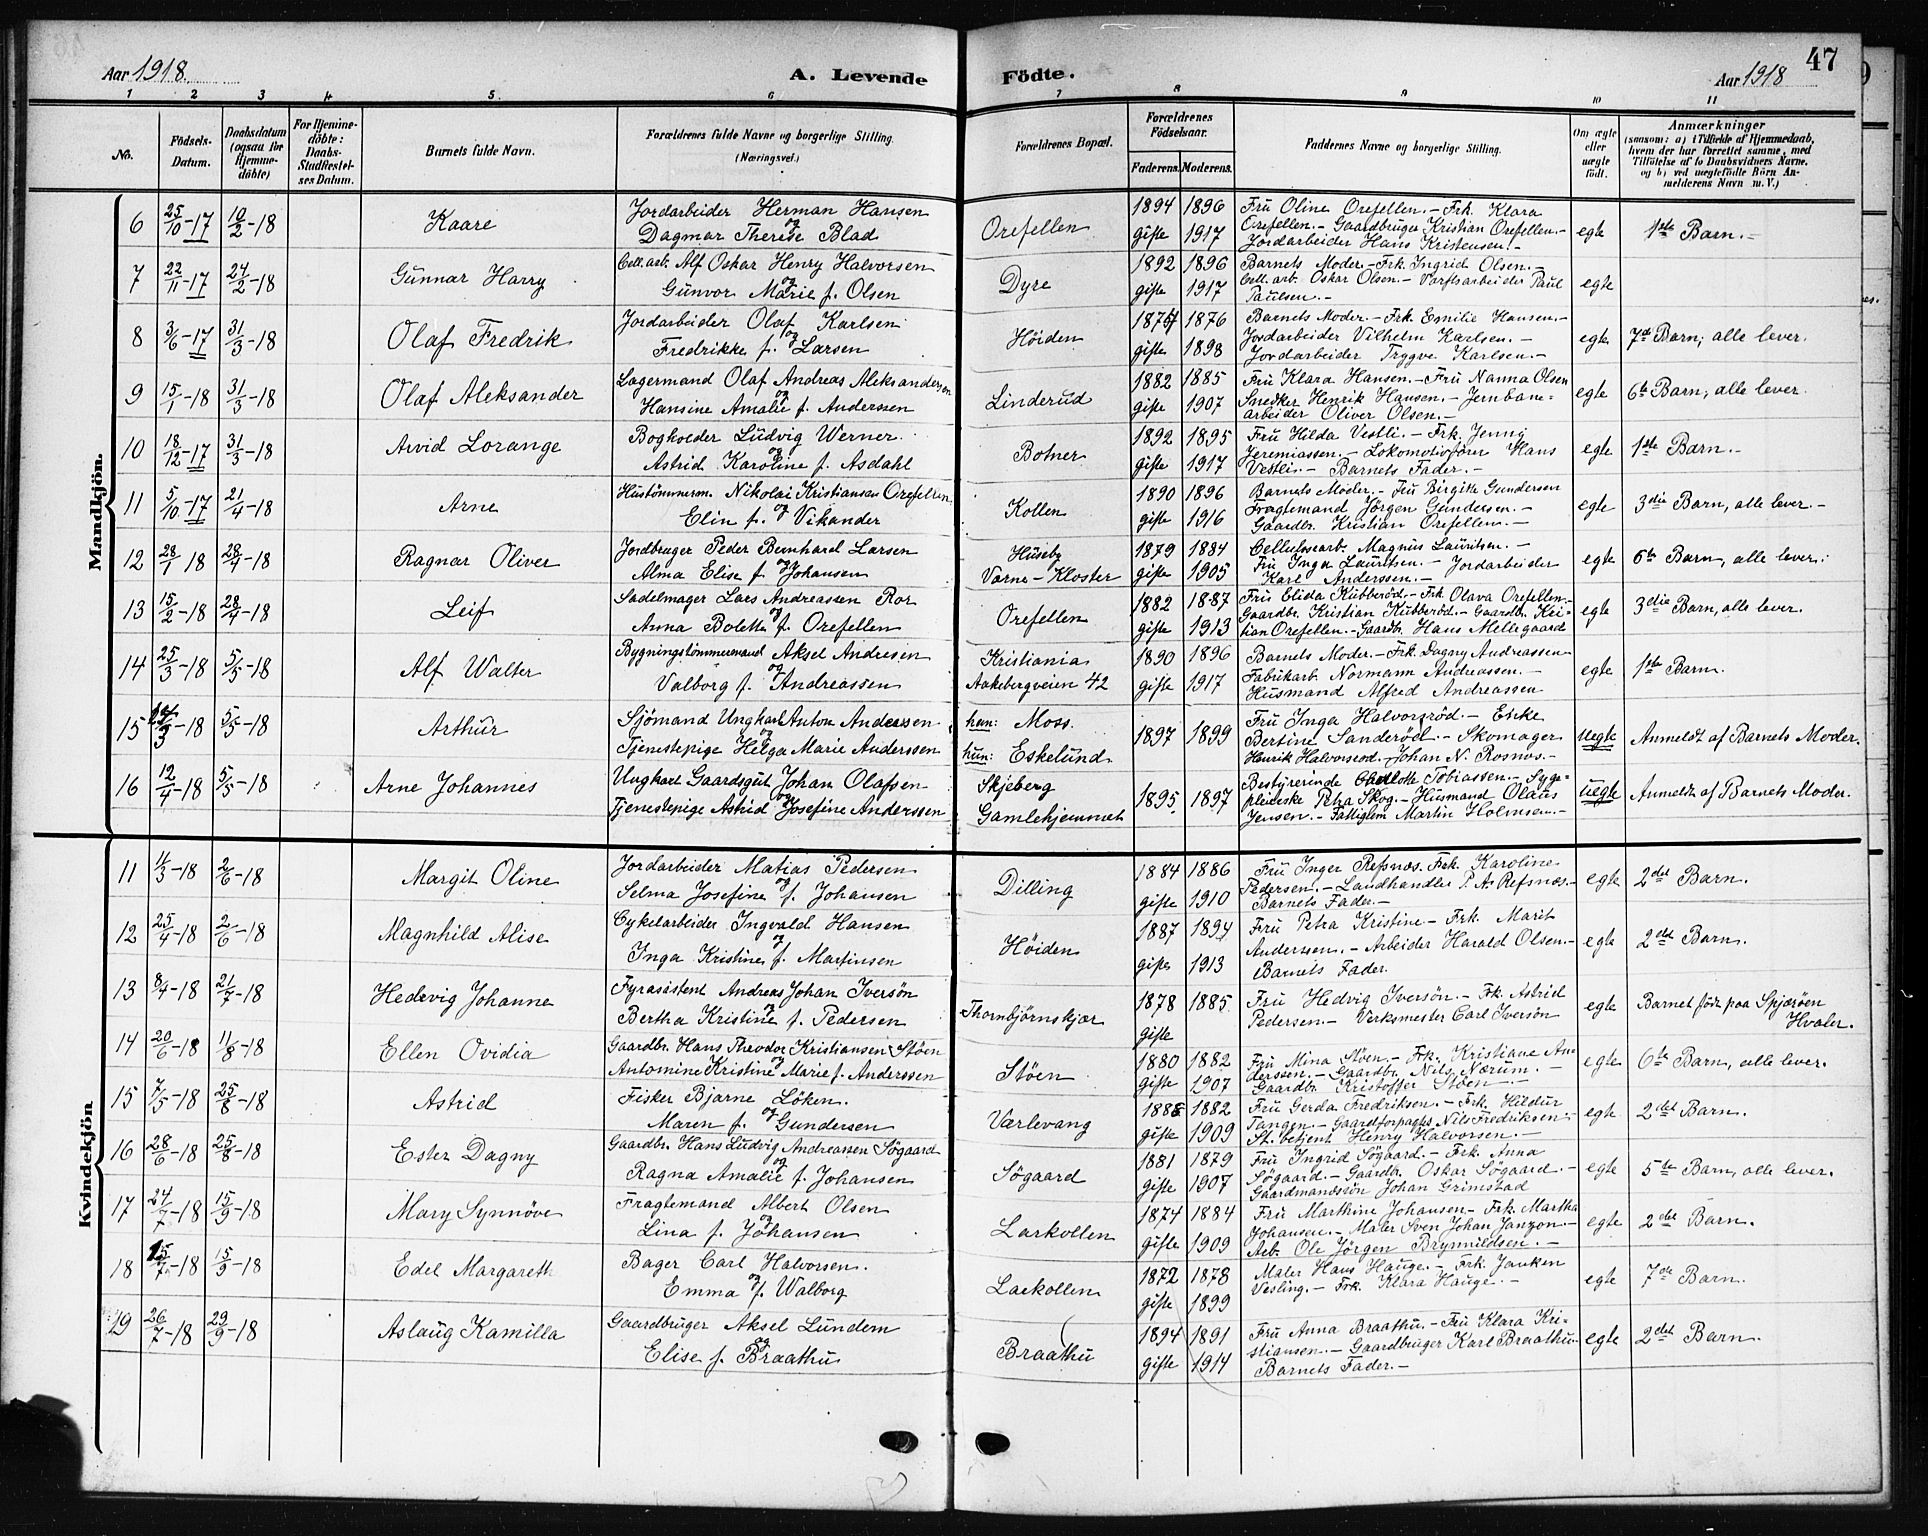 47
Aar 1918. A. Levende Födte. Aar 1918
1 2 3 4 5. 6 7 8 9 10 11
No.
Födsels-
Datum.
Daabsdatum
(ogsaa for
Hjemme-
döbte)
For Hjemme-
döbte:
Daabs-
Stadfæstel-
ses Datum.
Barnets fulde Navn.
Forældrenes fulde Navne og borgerlige Stilling.
(Næringsvei.)
Forældrenes Bopæl.
Forældrenes
Födselsaar.
Faderens. Moderens.
Faddernes Navne og borgerlige Stilling.
Om ægte
eller
uægte
födt.
Anmærkninger
(saasom: a) i Tilfælde af Hjemmedaab,
hvem der har forrettet samme, med
Tilföielse af to Daabsvidners Navne,
og b) ved uægtefödte Börn An-
melderens Navn m. V.)
Mandkjön.
6 25/10-17 10/2-18 Kaare
Jordarbeider Herman Hansen
og
Dagmar Therese Blad
Orefellen
1894 1896
gifte 1917
Fru Oline Orefellen.- Frk. Klara
Orefellen.- Gaardbruger Kristian Orefellen.-
Jordarbeider Hans Kristensen.-
egte 1ste Barn.-
7 22/11-17 24/2-18 Gunnar Harry
Cell.arb. Alf Oskar Henry Halvorsen
og
Gunvor Marie f. Olsen
Dyre
1892 1896
gifte 1917
Barnets Moder.- Frk. Ingrid Olsen.-
Cell.arb. Oskar Olsen.- Varftsarbeider Paul
Paulsen.-
egte
8 3/6-17 31/3-18 Olaf Fredrik
Jordarbeider Olaf Karlsen
og
Fredrikke f. Larsen
Höiden
1876
gifte 1898
Barnets Moder.- Frk. Emilie Hansen.-
Jordarbeider Vilhelm Karlsen.-
Jordarbeider Trygve Karlsen.-
egte 7de Barn, alle lever.
9 15/1-18 31/3-18 Olaf Aleksander
Lagermand Olaf Andreas Aleksandersen
og
Hansine Amalie f. Anderssen
Linderud
1882 1885
gifte 1907
Fru Klara Hansen.- Fru Nanna Olsen
Snedker Henrik Hansen.- Jernbane=
arbeider Oliver Olsen.-
egte 6te Barn, alle lever.
10 18/12-17 31/3-18 Arvid Lorange
Bogholder Ludvig Werner
og
Astrid Karoline f. Asdahl
Botner
1892 1895
gifte 1917
Fru Hilda Vestli.- Frk. Jenny
Jeremiassen.- Lokomotivförer Hans
Vestli.- Barnets Fader.-
egte 1ste Barn.-
11 5/10-17 21/4-18 Arne
Hustömmerm. Nikolai Kristiansen Orefellen
og
Elin f. Vikander
Kollen
1890 1896
gifte 1916
Barnets Moder.- Fru Birgitte Gundersen
Fragtemand Jörgen Gundersen.-
Gaardbr. Kristian Orefellen.-
egte 3die Barn, alle lever.-
12 28/1 18 28/4-18 Ragnar Oliver
Jordbruger Peder Bernhard Larsen
og
Alma Elise f. Johansen
Huseby
Varne-Kloster
1879 1884
gifte 1905
Cellulosearb. Magnus Lauritsen.-
Fru Inga Lauritsen.- Jordarbeider
Karl Anderssen.-
egte 6te Barn, alle lever.
13 15/2-18 28/4-18 Leif
Sadelmager Lars Andreassen Ror
og
Anna Bolette f. Orefellen
Orefellen
1882 1887
gifte 1913
Fru Elida Kubberöd.- Frk. Olava Orefellen-
Gaardbr. Kristian Kubberöd.- Gaardbr. Kri-
stian Orefellen.- Gaardbr. Hans Mellegaard
egte 3die Barn, alle lever.
14 25/3-18 5/5-18 Alf Walter
Bygningstömmermand Aksel Andresen
og
Valborg f. Andreassen
Kristiania
Aakebergveien 42
1890 1896
gifte 1917
Barnets Moder.- Frk. Dagny Andreassen
Fabrikarb. Normann Andreassen.-
Husmand Alfred Andreassen
egte 1ste Barn.
15 -18 5/5-18 Arthur
Sjömand Ungkarl Anton Andersen
og
Tjenestepige Helga Marie Anderssen
han: Moss.
hun: Eskelund
1897 1899
Fru Inga Halvorsröd.- Enke
Bertine Sanderöd.- Skomager
Henrik Halvorsrod.- Johan N. Rosnes.-
uegte Anmeldt af Barnets Moder.
16 12/4-18 5/5-18 Arne Johannes
Ungkarl Gaardsgut Johan Olafsen
og
Tjenestepige Astrid Josefine Anderssen
Skjeberg
Gamlehjemmet
1895 1897
Bestyrerinde Charlotte Tobiassen.- Syge-
pleierske Petra Skog.- Husmand Olaus
Jensen.- Fattiglem Martin Holmsen.-
uegte Anmeldt af Barnets Moder.
Kvindekjön
11 11/3-18 2/6-18 Margit Oline
Jordarbeider Matias Pedersen
og
Selma Josefine f. Johansen
Dilling
1884 1886
gifte 1910
Fru Inger Refsnæs. Frk. Karoline
Pedersen.- Landhandler P. A. Refsnæs.-
Barnets Fader.-
egte 2det Barn.
12 25/4-18 2/6-18 Magnhild Alise
Cykelarbeider Ingvald Hansen
og
Inga Kristine f. Martinsen
Höiden
1887 1894
gifte 1913
Fru Petra Kristine- Frk. Marit
Andersen.- Arbeider Harald Olsen.-
Barnets Fader.
egte 2det Barn.
13 8/4-18 21/7-18 Hedevig Johanne
Fyrasistent Andreas Johan Iversön
og
Bertha Kristine f. Pedersen
Thornbjörnskjær
1878 1885
gifte
Fru Hedvig Iversön.- Frk. Astrid
Pedersen.- Verksmester Carl Iversön
egte Barnet födt paa Spjæröen
Hvaler.
14 20/6-18 11/8-18 Ellen Ovidia
Gaardbr. Hans Theodor Kristiansen Stöen
og
Antomine Kristine Marie f. Anderssen
Stöen
1880 1882
gifte 1907
Fru Mina Stöen.- Frk. Kristiane An-
derssen.- Gaardbr. Nils Nærum.-
Gaardbr. Kristoffer Stöen.-
egte 6te Barn, alle lever.
15 7/5-18 25/8-18 Astrid
Fisker Bjarne Löken.
og
Maren f. Gundersen
Værlevang
1882
gifte 1909
Fru Gerda Fredriksen.- Frk. Hildur
Tangen.- Gaardforpagter Nils Fredriksen
St. betjent Henry Halvorsen.-
egte 2det Barn.
16 28/6-18 25/8-18 Ester Dagny
Gaardbr. Hans Ludvig Andreassen Sögaard
og
Ragna Amalie f. Johansen
Sögaard
1881 1879
gifte 1907
Fru Ingrid Sögaard.- Frk. Anna
Sögaard.- Gaardbr. Oskar Sögaard.-
Gaardmandssön Johan Grimstad
egte 5te Barn, alle lever.
17 24/7-18 15/9-18 Mary Synnöve
Fragtemand Albert Olsen
og
Lina f. Johansen
Larkollen
1874 1884
gifte 1909
Fru Marthine Johansen- Frk. Martha
Johansen.- Maler Sven Johan Janzon.-
Arb. Ole Jörgen Brynnildsen.-
egte 2det Barn.
18 15/7-18 15/9-18 Edel Margareth
Bager Carl Halvorsen.
og
Emma f. Walborg
Larkollen
1872 1878
gifte 1899
Maler Hans Hauge.- Frk. Janken
Vesling.- Frk. Klara Hauge.-
egte 7de Barn.
19 26/7-18 29/9-18 Aslaug Kamilla
Gaardbruger Aksel Lundern
og
Elise f. Braathu
Braathu
1894 1891
gifte 1914
Fru Anna Braathu.- Fru Klara Kri-
stiansen.- Gaardbruger Karl Braathu-
Barnets Fader.-
egte 2det Barn.